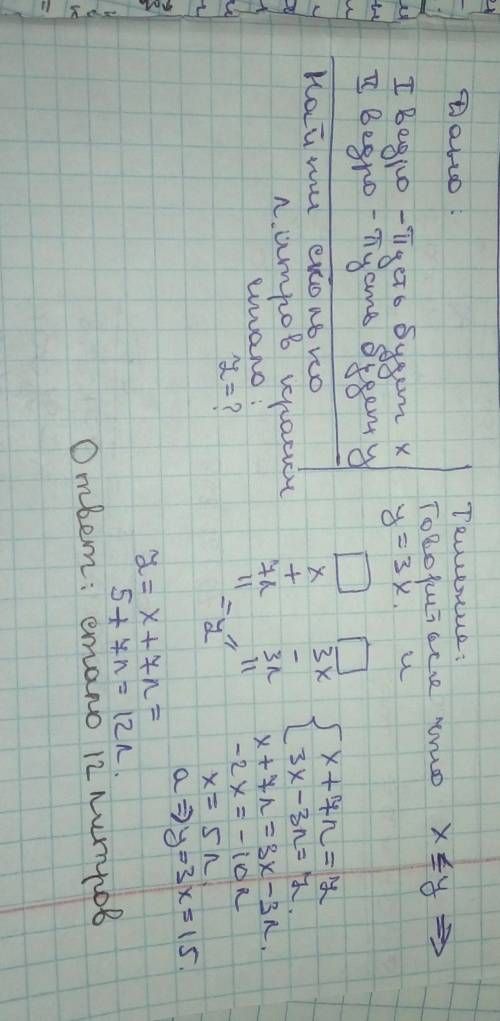 Дано:
I ведро - Пусть будет x
II ведро - Пусть будет y
Найти сколько
литров краски
стало:
z = ?
Решение:
Говорится что x ≤ y ⇒
y = 3x. и
x 3x
+ -
7л 3л
= z =
{ x + 7л = z
3x - 3л = z.
x + 7л = 3x - 3л.
-2x = -10л
x = 5л.
а ⇒ y = 3x = 15.
z = x + 7л =
5 + 7л = 12л.
Ответ: стало 12 литров